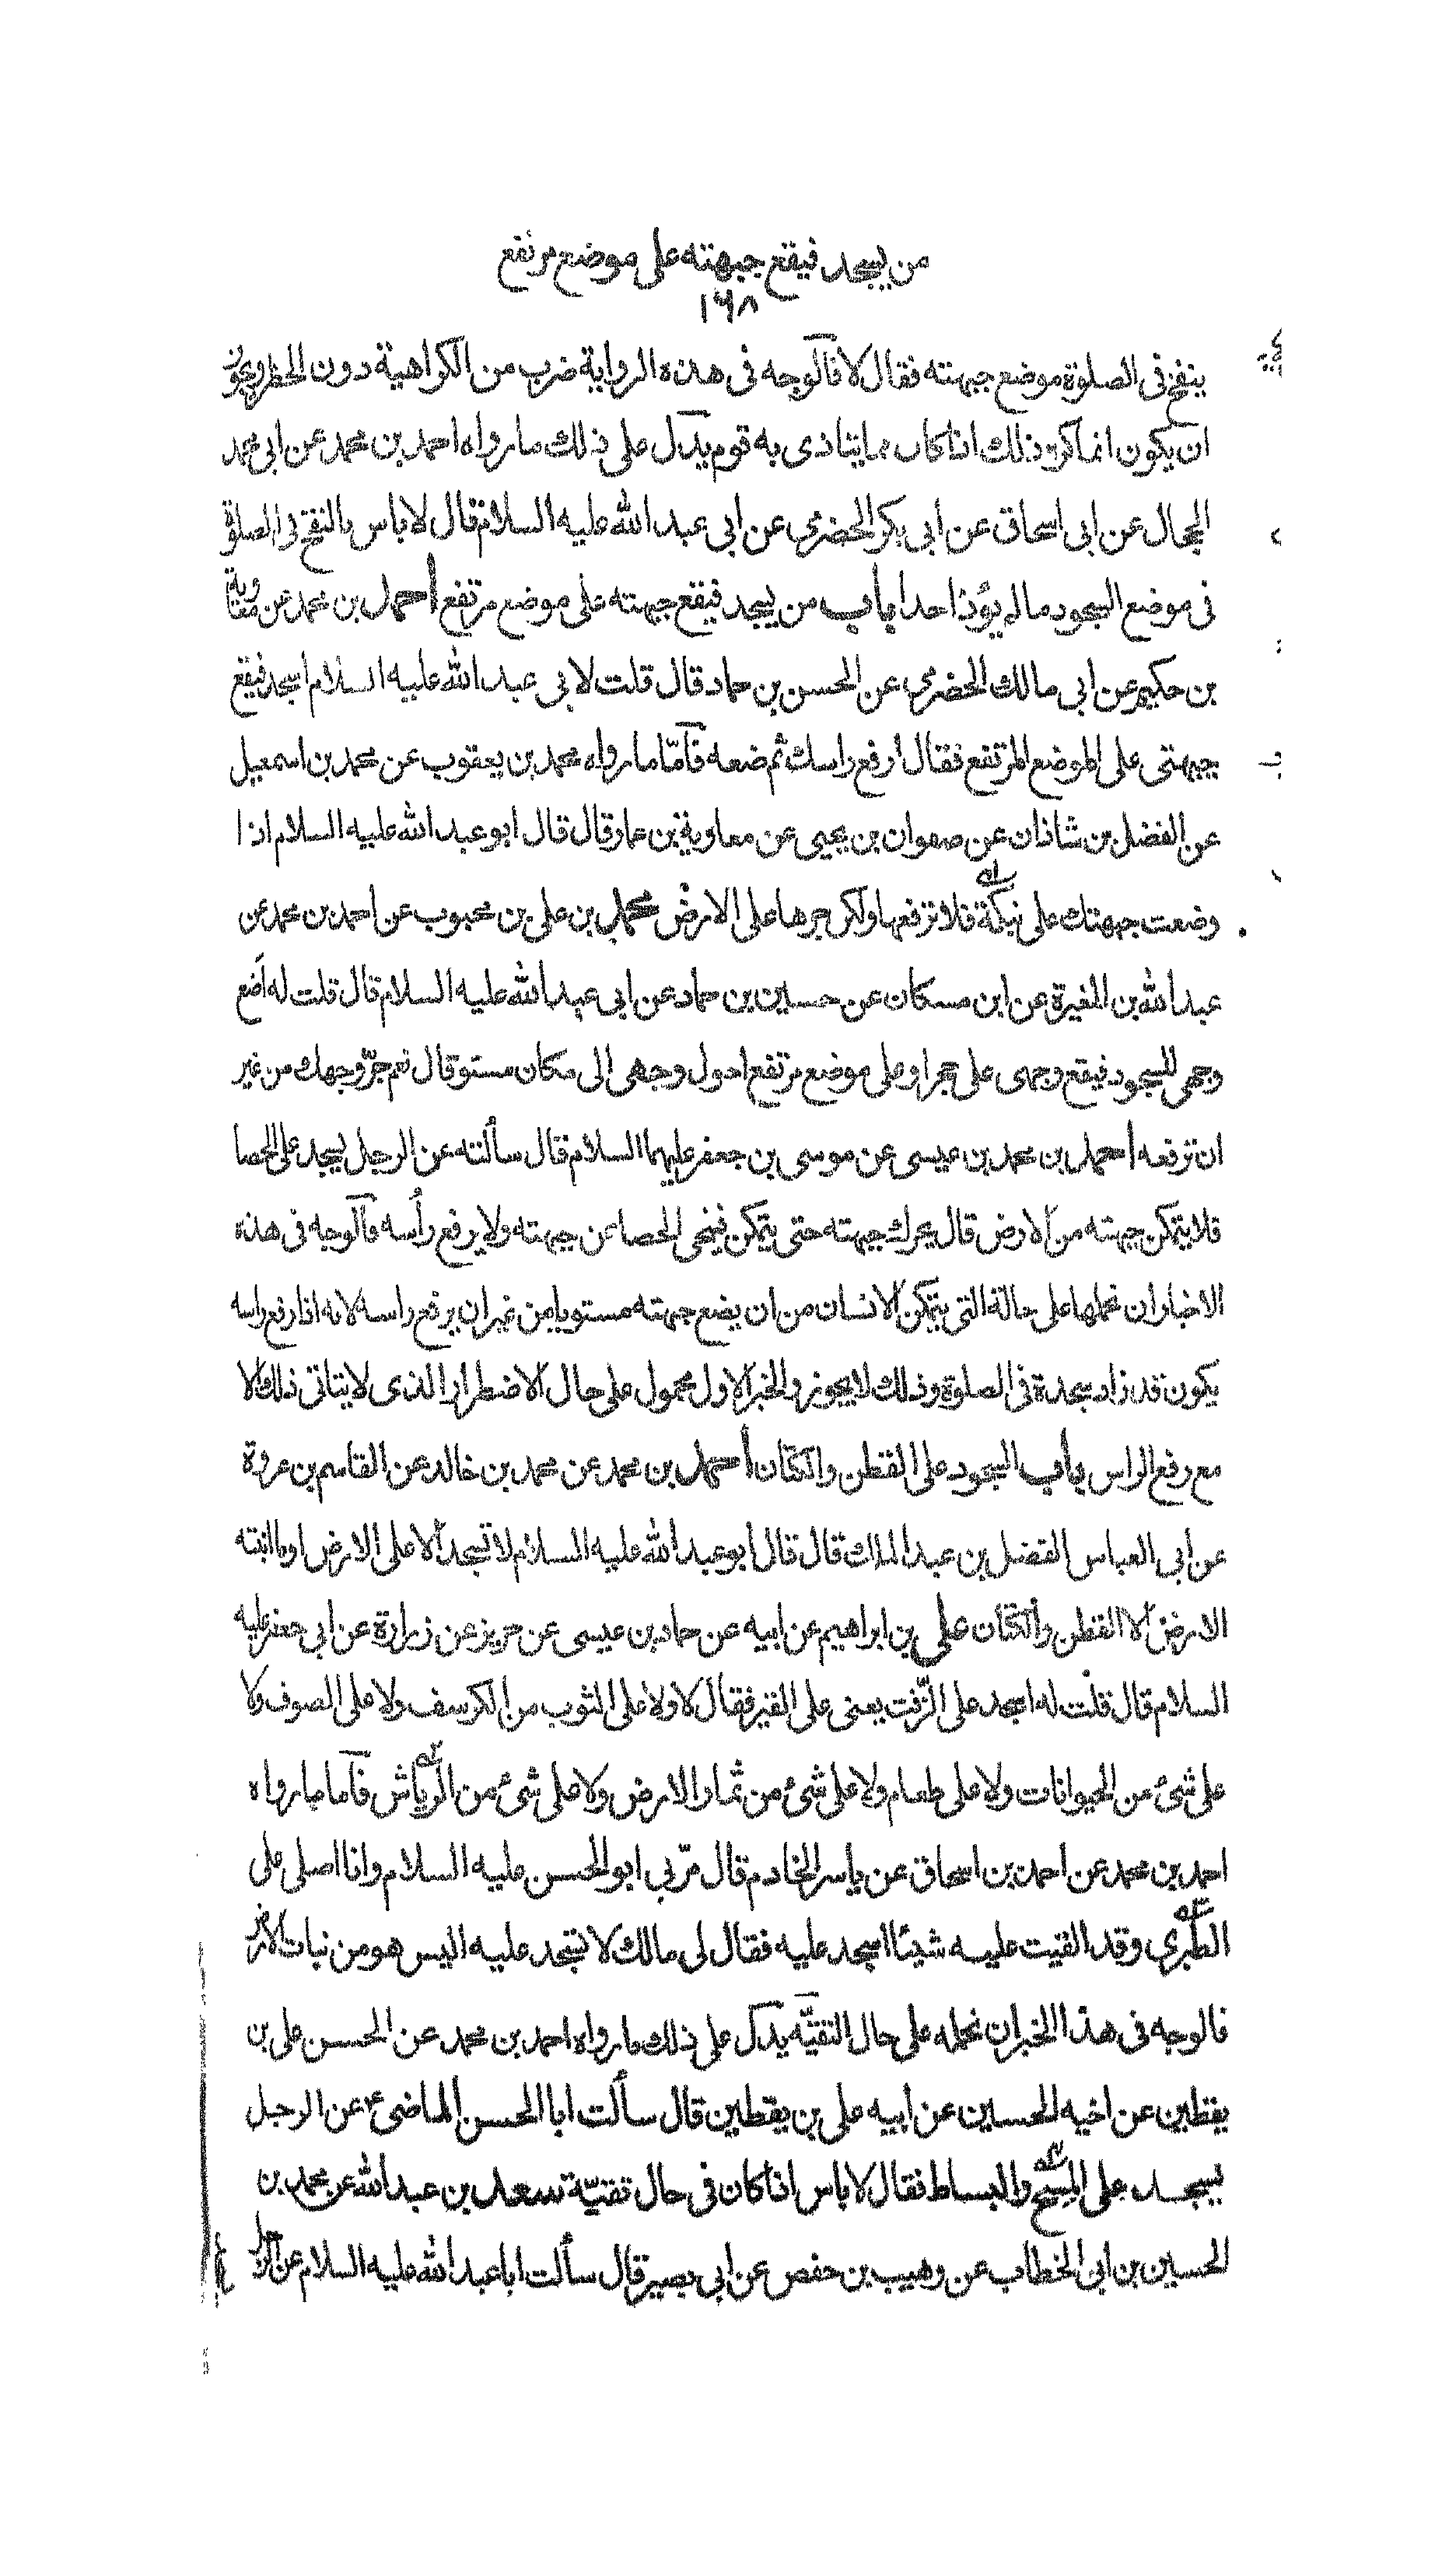 من يسجد فيقع جبهته على موضع مرتفع
١٦٨
ينفخ فى الصلوة موضع جبهته فقال لا فالوجه فى هذه الرواية ضرب من الكراهية دون الحظر ويجوز
ان يكون انما كره ذلك اذا كان مما يتاذى به قوم يدل على ذلك ما رواه احمد بن محمد عن ابى محمد
الحجال عن ابى اسحاق عن ابى بكر الحضرمى عن ابى عبد الله عليه السلام قال لا باس بالنفخ فى الصلوة
فى موضع السجود ما لم يؤذ احدا باب من يسجد فيقع جبهته على موضع مرتفع احمد بن محمد عن معاوية
بن حكيم عن ابى مالك الحضرمى عن الحسن بن حماد قال قلت لابى عبد الله عليه السلام اسجد فيقع
جبهتى على الموضع المرتفع فقال ارفع راسك ثم ضعه فامّا ما رواه محمد بن يعقوب عن محمد بن اسمعيل
عن الفضل بن شاذان عن صفوان بن يحيى عن معاوية بن عمار قال قال ابو عبد الله عليه السلام اذا
وضعت جبهتك على نبكة فلا ترفعها ولكن جرها على الارض محمد بن على بن محبوب عن احمد بن محمد عن
عبد الله بن المغيرة عن ابن مسكان عن حسين بن حماد عن ابى عبد الله عليه السلام قال قلت له اضع
وجهى للسجود فيقع وجهى على حجر او على موضع مرتفع احول وجهى الى مكان مستو قال نعم جرّ وجهك من غير
ان ترفعه احمد بن محمد بن عيسى عن موسى بن جعفر عليهما السلام قال سألته عن الرجل يسجد على الحصا
فلا يتمكن جبهته من الارض قال يحرك جبهته حتى يتمكن فينحى الحصا عن جبهته ولا يرفع رأسه فالوجه فى هذه
الاخبار ان نحملها على حالة التى يتمكن الانسان من ان يضع جبهته مستويا من غير ان يرفع راسه لانه اذا رفع راسه
يكون قد زاد سجدة فى الصلوة وذلك لا يجوز والخبر الاول محمول على حال الاضطرار الذى لا يتاتى ذلك الا
مع رفع الراس باب السجود على القطن والكتّان احمد بن محمد عن محمد بن خالد عن القاسم بن عروة
عن ابى العباس الفضل بن عبد الملك قال قال ابو عبد الله عليه السلام لا تسجد الا على الارض او ما انبته
الارض الا القطن والكتّان على بن ابراهيم عن ابيه عن حماد بن عيسى عن حريز عن زرارة عن ابى جعفر عليه
السلام قال قلت له اسجد على الزّفت يعنى على القير فقال لا ولا على الثوب من الكرسف ولا على الصوف ولا
على شئ من الحيوانات ولا على طعام ولا على شئ من ثمار الارض ولا على شئ من الرياش فاما ما رواه
احمد بن محمد عن احمد بن اسحاق عن ياسر الخادم قال مرّ بى ابو الحسن عليه السلام وانا اصلى على
الطبرى وقد القيت عليه شيئا اسجد عليه فقال لى مالك لا تسجد عليه اليس هو من نبات الارض
فالوجه فى هذا الخبر ان نحمله على حال التقيّه يدل على ذلك ما رواه احمد بن محمد عن الحسن على بن
يقطين عن اخيه الحسين عن ابيه على بن يقطين قال سألت ابا الحسن الماضى ع عن الرجل
يسجد على المسح والبساط فقال لا باس اذا كان فى حال تقيّة سعد بن عبد الله عن محمد بن
الحسين بن ابى الخطاب عن وهيب بن حفص عن ابى بصير قال سألت ابا عبد الله عليه السلام عن الرجل